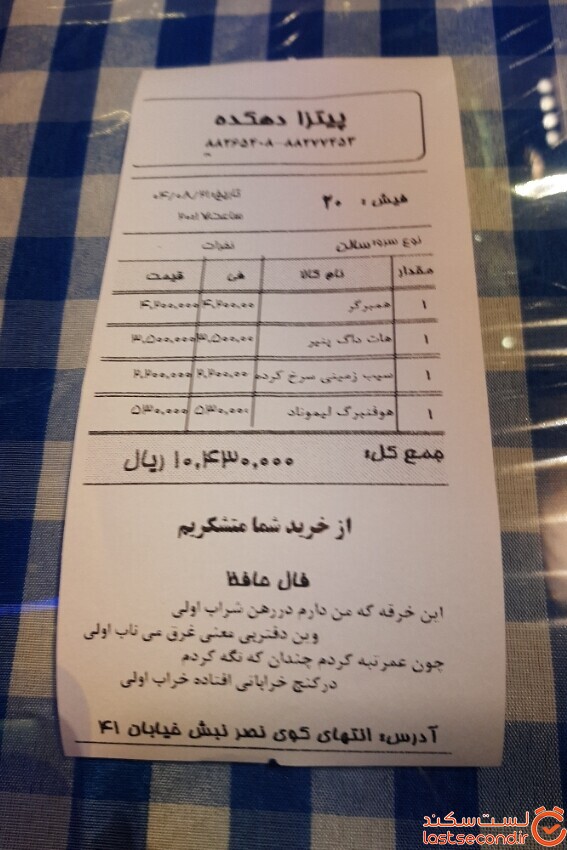 پیتزا دهکده
۸۸۲۶۵۴۰۸-۸۸۲۷۷۲۵۳
فیش : ۲۰ تاریخ:
ساعت
نوع سرو: سالن نفرات
مقدار نام کالا فی قیمت
۱ همبرگر ۴,۲۰۰,۰۰۰ ۴,۲۰۰,۰۰۰
۱ هات داگ پنیر ۳,۵۰۰,۰۰۰ ۳,۵۰۰,۰۰۰
۱ سیب زمینی سرخ کرده ۲,۲۰۰,۰۰۰ ۲,۲۰۰,۰۰۰
۱ هوفنبرگ لیموناد ۵۳۰,۰۰۰ ۵۳۰,۰۰۰
جمع کل: ۱۰,۴۳۰,۰۰۰ ریال
از خرید شما متشکریم
فال حافظ
این خرقه که من دارم دررهن شراب اولی
وین دفتربی معنی غرق می ناب اولی
چون عمرتبه کردم چندان که نگه کردم
درکنج خراباتی افتاده خراب اولی
آدرس: انتهای کوی نصر نبش خیابان ۴۱
لست سکند
lastsecond.ir